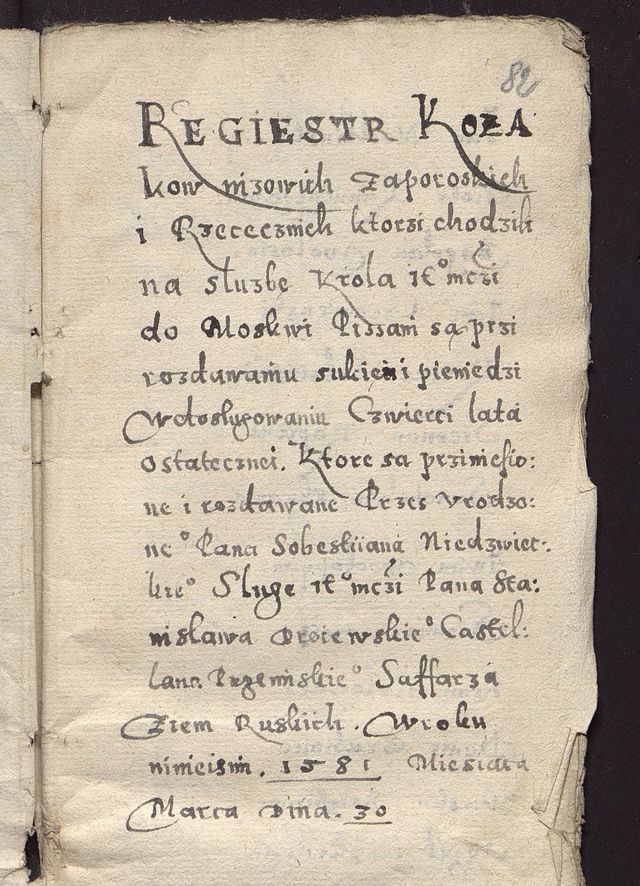 82
REGIESTR KOZA
kow nizowich zaporoskich
i Rzececznich ktorzi chodzili
na službę Krola Je° mczi
do Moskwi Pissani są przi
rozdawaniu sukien i pieniedzi
Wdosługowaniu Czwierci lata
ostatecznei. Ktore sa przinięsio:
ne i rozdawane Przes vrodzo:
ne° Pana Sobestiiana Niedzwiec:
kie° Sluge Je° mczi Pana Sta:
nisława Droiewskie° Castel:
lana Przemiskie° Saffarza
Ziem Ruskiich. Wroku
ninieisim. 1581 Miesiaca
Marca Dnia. 30